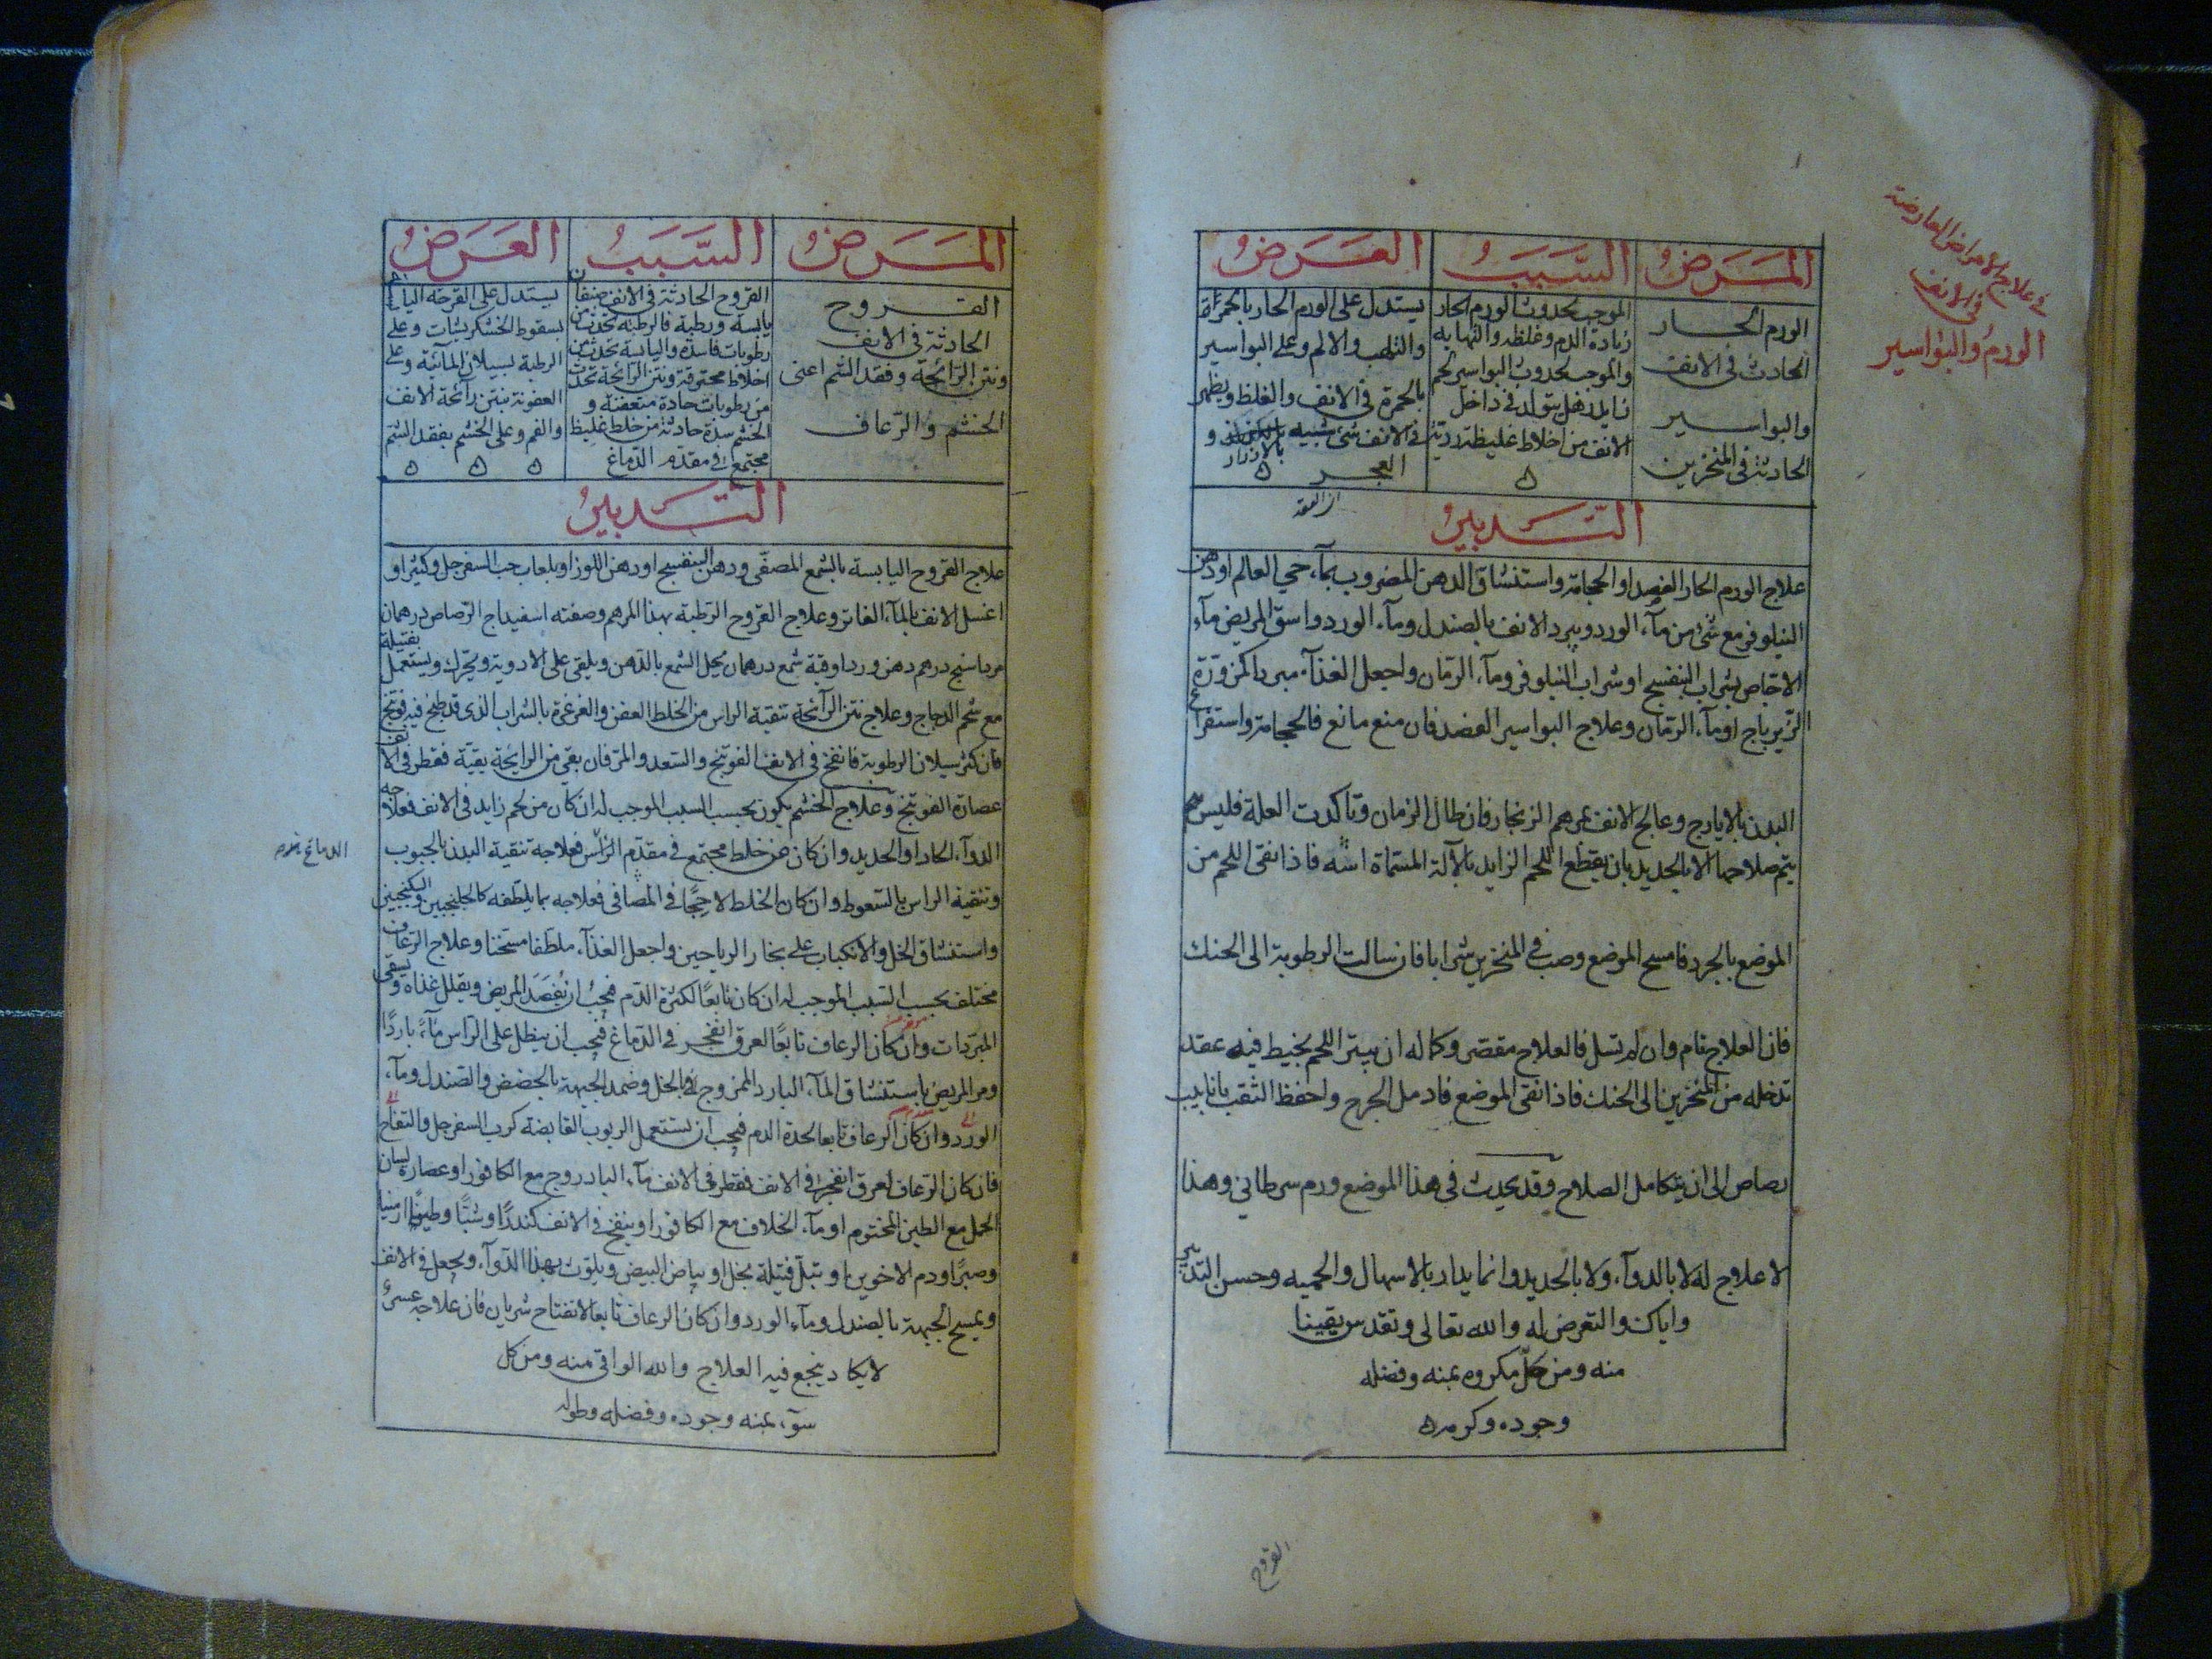 في علاج الامراض العارضة
في الانف
الورمُ والبواسير
المَرَضُ
السَّبَبُ
العَرَضُ
الورم الحار
الحادث في الانف
والبواسير
الحادثة في المنخرين
الموجب لحدوث الورم الحار
زيادة الدم وغلظه والتهابه
والموجب لحدوث البواسير لحم
زايد يتولد في داخل
الانف من اخلاط غليظة ردية
يستدل على الورم الحار بالحمرة
والتلهب والالم وعلى البواسير
بالحمرة في الانف والغلظ ويظهر
في الانف شئ شبيه و
بالازرار
العجر
التَّدبيرُ
علاج الورم الحار الفصد او الحجامة واستنشاق الدهن المضروب بمآء حي العالم او دهن
النيلوفر مع شئ من مآء الورد ويبرد الانف بالصندل ومآء الورد واسق المريض مآء
الاجاص بشراب البنفسج او شراب النيلوفر ومآء الرمان واجعل الغذآء مبردا كمزوّرة
الزيرباج او مآء الرمان وعلاج البواسير الفصد فان منع مانع فالحجامة واستفراغ
البدن بالايارج وعالج الانف بمرهم الزنجار فان طال الزمان وتأكدت العلة فليس
يتم صلاحها الا بالحديد بان يقطع اللحم الزايد بالآلة المسمّاة فاذا نقى اللحم من
الموضع بالجرد فامسح الموضع وصب في المنخرين شرابا فان سالت الرطوبة الى الحنك
فان العلاج تام وان لم تسل فالعلاج مقصر وكماله ان يبتر اللحم بخيط فيه عقد
تدخله من المنخرين الى الحنك فاذا نقى الموضع فادمل الجرح واحفظ الثقب بانابيب
رصاص الى ان يتكامل الصلاح وقد يحدث في هذا الموضع ورم سرطاني وهذا
لا علاج له لا بالدوآء ولا بالحديد وانما يدار بالاسهال والحميه وحسن التدبير
واياك والتعرض له والله تعالى وتقدس يقينا
منه ومن كلّ مكروه بمنه وفضله
وجوده وكرمه
القروح
المَرَضُ
السَّبَبُ
العَرَضُ
القروح
الحادثة في الانف
ونتن الرّائحة وفقد الشم اعنى
الخشم والرّعاف
القروح الحادثة في الانف صنفان
يابسة ورطبة فالرطبة تحدث من
رطوبات فاسدة واليابسة تحدث من
اخلاط محترقة ونتن الرائحة تحدث
من رطوبات حادة متعفنة و
الخشم سدة حادثة من خلط غليظ
مجتمع في مقدم الدّماغ
يستدل على القرحة اليابسة
بسقوط الخشكريشات وعلى
الرطبة بسيلان المآئية وعلى
العفونة بنتن رآئحة الانف
والفم وعلى الخشم بفقد الشم
التَّدبيرُ
علاج القروح اليابسة بالشمع المصفّى ودهن البنفسج او دهن اللوز او بلعاب حب السفرجل وكثيرا او
اغسل الانف بالمآء الفاتر وعلاج القروح الرطبة بهذا المرهم وصفته اسفيداج الرّصاص درهمان
مرداسنج درهم دهن ورد اوقية شمع درهمان يحل الشمع بالدّهن ويلقى على الادوية ويحرّك ويستعمل بفتيلة
مع شحم الدجاج وعلاج نتن الرآئحة تنقية الراس من الخلط العفن والغرغرة بالشراب الذى قد طبخ فيه فوتنج
فان كثر سيلان الرطوبة فانفخ في الانف الفوتنج والسعد والمرّ فان بقى من الرايحة بقيّة فقطر في الانف
عصارة الفوتنج وعلاج الخشم يكون بحسب السبب الموجب له ان كان من لحم زايد في الانف فعلاجه
الدوآء الحاد او الحديد وان كان من خلط مجتمع في مقدّم الرّاس فعلاجه تنقية البدن بالحبوب
وتنقية الراس بالسّعوط وان كان الخلط لاحجًا في المصافى فعلاجه بما يلطّفه كالجلنجبين والسكنجبين
واستنشاق الخل والانكباب على بخار الرياحين واجعل الغذآء ملطّفا مسخنا وعلاج الرّعاف
مختلف بحسب السبب الموجب له ان كان تابعًا لكثرة الدّم فيجب ان يُفصَد المريض ويقلل غذاه ويسقى
المبرّدات وان كان الرعاف تابعًا لعرق انفجر في الدّماغ فيجب ان ينطل على الرّاس مآءً باردًا
ومر المريض باستنشاق المآء البارد الممزوج بالخل وضمد الجبهة بالحضض والصّندل ومآء
الورد وان كان الرعاف تابعا لحدة الدم فيجب ان يستعمل الربوب القابضة كرب السفرجل والتفاح
فان كان الرّعاف لعرق انفجر في الانف فقطر في الانف مآء البادروج مع الكافور او عصارة لسان
الحمل مع الطين المختوم او مآء الخلاف مع الكافور او ينفخ في الانف كندرًا وشبًا وطينًا ارمنيا
وصبرًا ودم الاخوين او تبلّ فتيلة بخل او بياض البيض ويلوّث بهذا الدّوآء ويجعل في الانف
ويمسح الجبهة بالصندل ومآء الورد وان كان الرعاف تابعا لانفتاح شريان فان علاجه عسر
لا يكاد ينجع فيه العلاج والله الواقى منه ومن كل
سوٓء بمنه وجوده وفضله وطوله